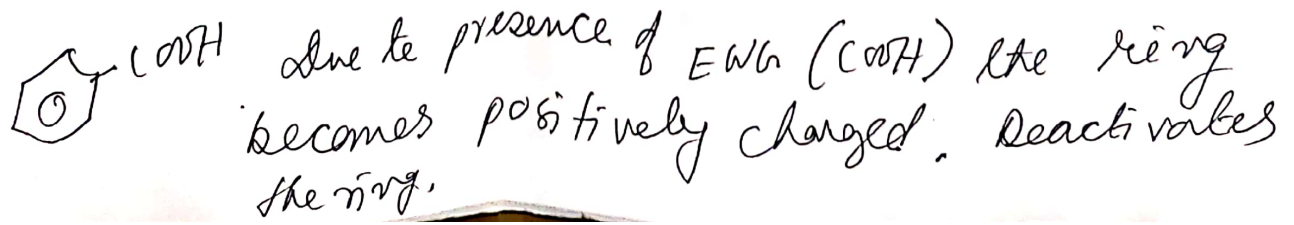 COOH Due to presence of EWG (COOH) the ring
becomes positively charged. Deactivates
the ring.